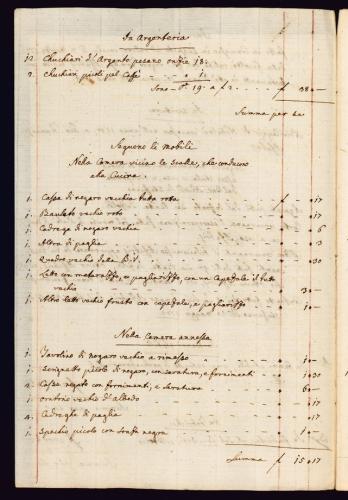 In Argenteria
12. Chuchiari d'Argento pesano onzie 18:
2. Chuchiari picoli pel Caffè - - a 1:
Sono - 19 - a £ 2 - - - £ 38 = -
Summa per se
Sequono li Mobili
Nella Camera vicino le Scalle, che conducono
alla Cucina.
1. Cassa di nogaro vecchia tutta rotta - - £ - = 17
1. Baulato vechio roto - - - = 17
1. Cadrega di nogaro vechia - - - = 6
1. Altra di paglia - - - = 3
1. Quadro vechio della B.V. - - - = 30
1. Letto con materasso, e pagliarisso, con un Capedale il tutto
vechio - - - 3 = -
1. Altro letto vechio fruato con capedale, e pagliarisso - 1 = -
Nella Camera annessa
1. Tavolino di nogaro vechio a rimesso - - 1 = -
1. picolo di nogaro, con seratura, e fornimenti - 1 = 30
2. Casse nogaro con fornimenti, e serature - - 6 = -
1. oratorio vechio d'albedo - - - = 17
4. Cadreghe di paglia - - - = 17
1. Spechio picolo con soasa negra - - 1 = -
Summa £ 15 = 17